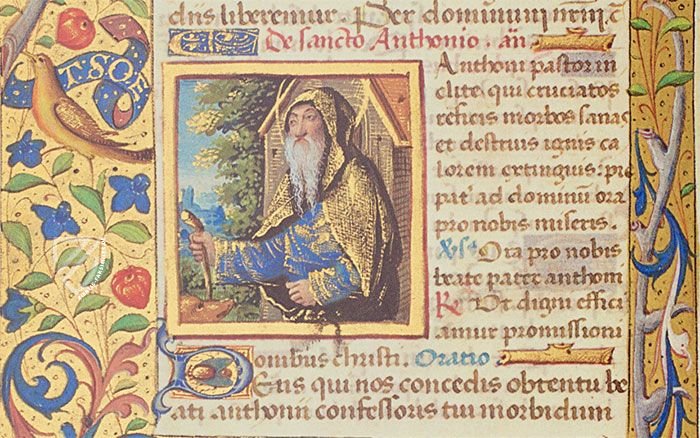 TSOE
diis liberemur. Per dominum nrm.
De sancto Anthonio. an
Anthoni pastor in
clite qui cruciatos
reficis morbos sanas
et destruis ignis ca
lorem extinguis: pie
pater ad dominum ora
pro nobis miseris.
Ora pro nobis
beate pater anthoni
Re Vt digni effici
amur promissioni
onibus christi. Oratio
Deus qui nos concedis obtentu be
ati anthonii confessoris tui morbidum